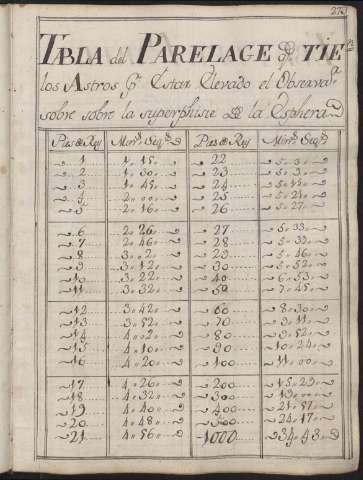 TBLA del PARELAGE q TIE
los Astros Pr Estar Elevado el Observa
sobre sobre la superphisie de la Esphera
Pies de Rey Min.s Seg.s Pies de Rey Min.s Seg.s
1 45 22
2 1 30 23
3 1 45 24
4 2 00 25
5 2 16 26
6 2 26 27 5 33
7 2 46 28 5 39
8 3 2 29 5 46
9 3 12 30 5 52
10 3 22 40 6 53
11 3 32 50 7 45
12 3 42 60 8 30
13 3 52 70 9 11
14 4 2 80 9 52
15 4 10 90 10 24
16 4 20 100 11 00
17 4 26 200 15 29
18 4 32 300 19 00
19 4 40 400 21 57
20 4 48 500 24 17
21 4 56 1000 34 43